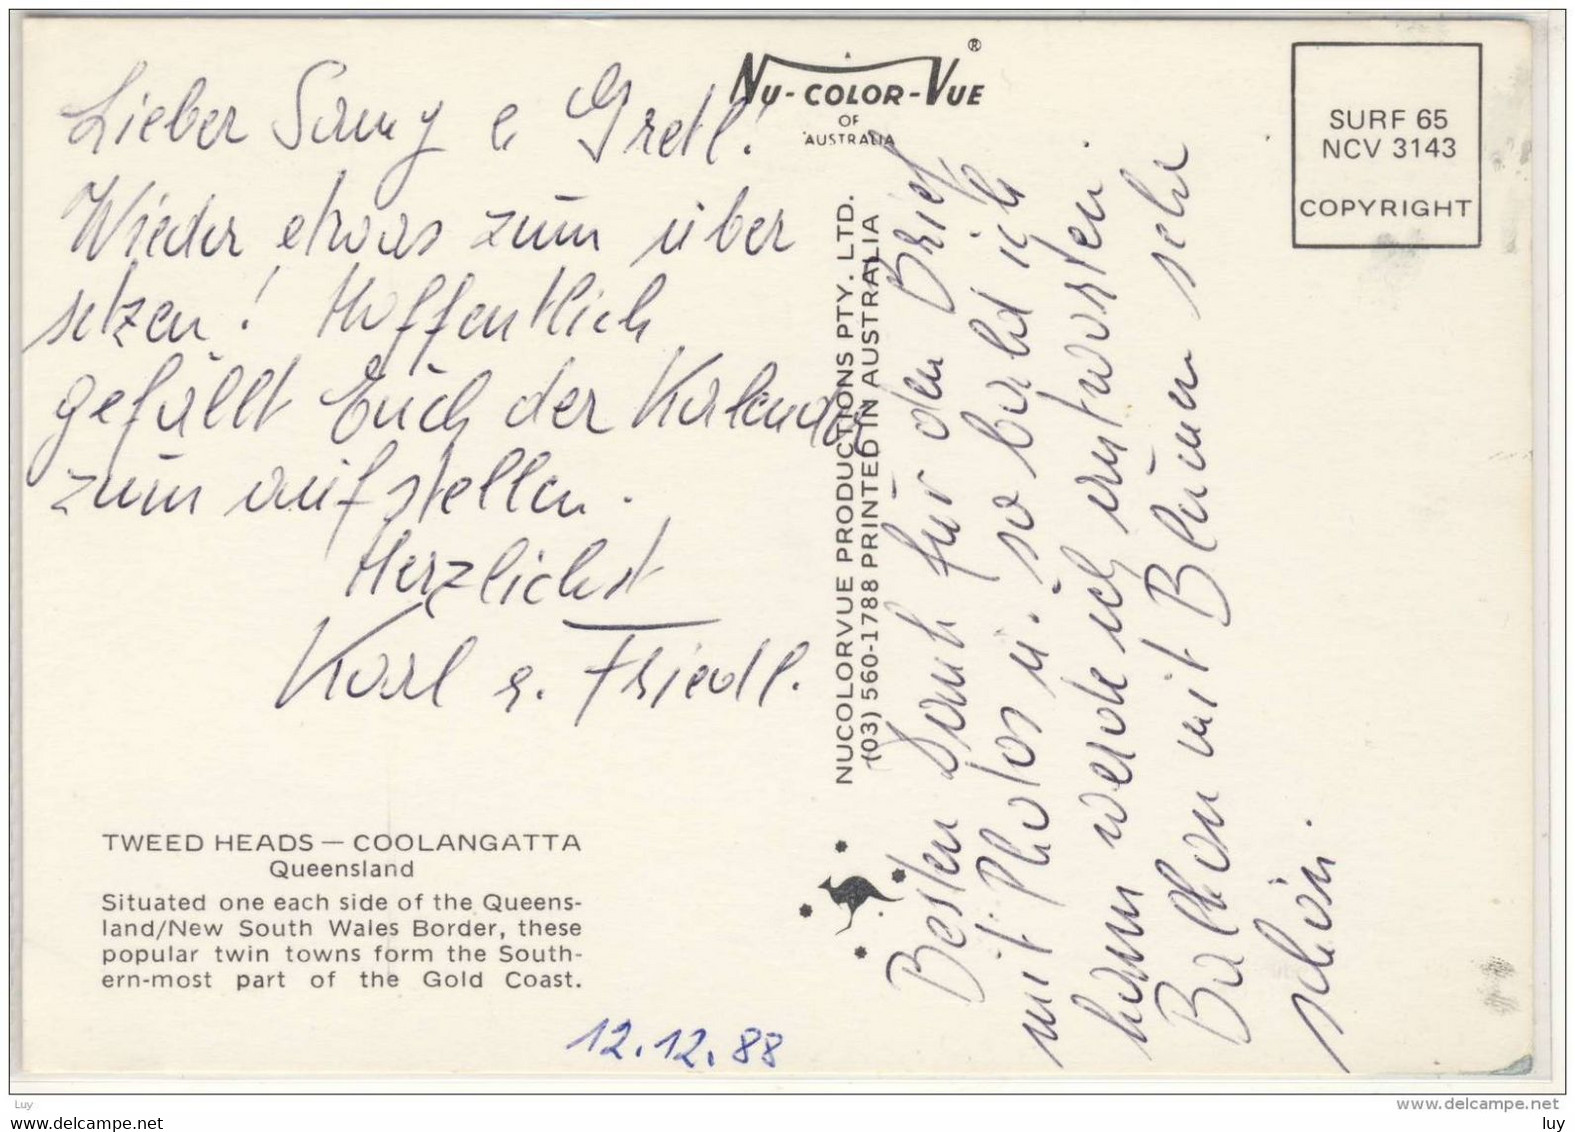 Lieber Samy e Gretl!
Wieder etwas zum über
setzen! Hoffentlich
gefällt Euch der Kalender
zum aufstellen.
Herzlichst
Karl e. Friedl.
TWEED HEADS — COOLANGATTA
Queensland
Situated one each side of the Queens-
land/New South Wales Border, these
popular twin towns form the South-
ern-most part of the Gold Coast.
12.12.88
NU-COLOR-VUE®
OF
AUSTRALIA
NUCOLORVUE PRODUCTIONS PTY. LTD.
(03) 560-1788 PRINTED IN AUSTRALIA
Besten Dank für den Brief
mit Photos u. so bald ich
kann werde ich antworten.
Balkon mit Blumen sehr
schön.
SURF 65
NCV 3143
COPYRIGHT
Luy
www.delcampe.net
www.delcampe.net
luy